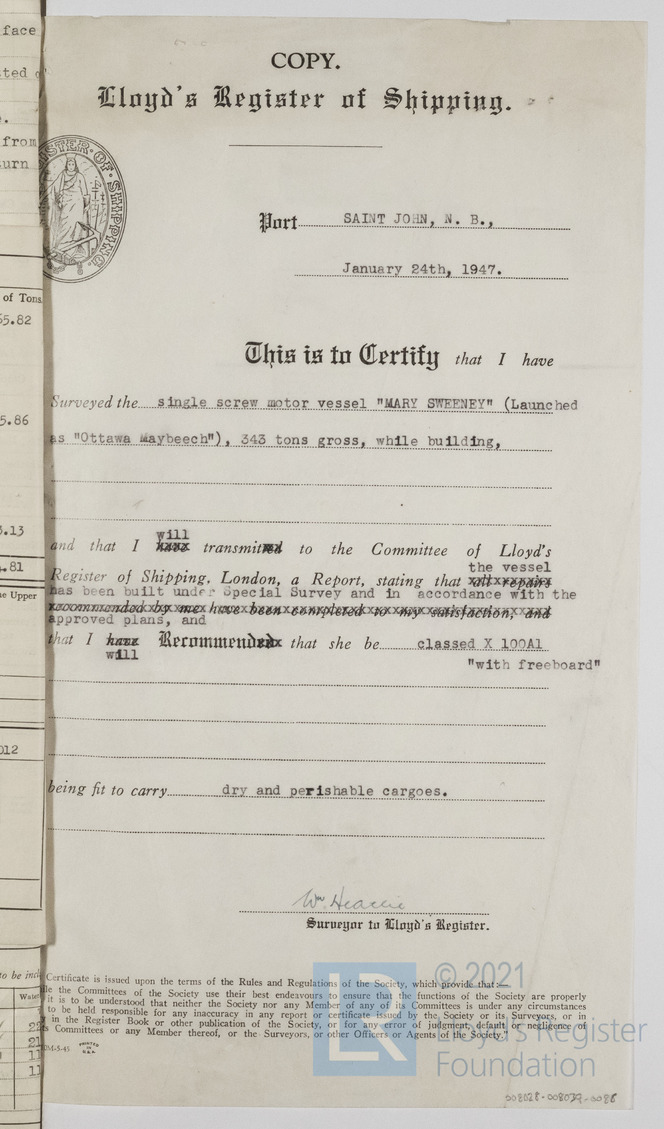 face
ted
from
urn
of Tons
55.82
5.86
3.13
.81
e Upper
012
to be incl
Water
22
21
11
11
COPY.
Lloyd's Register of Shipping.
REGISTER·OF·SHIPPING.
Port SAINT JOHN, N. B.,
January 24th, 1947.
This is to Certify that I have
Surveyed the single screw motor vessel "MARY SWEENEY" (Launched
as "Ottawa Maybeech"), 343 tons gross, while building,
will
and that I have transmitted to the Committee of Lloyd's
the vessel
Register of Shipping, London, a Report, stating that all repairs
has been built under Special Survey and in accordance with the
recommended by me have been completed to my satisfaction, and
approved plans, and
that I have Recommended that she be classed X 100A1
will "with freeboard"
being fit to carry dry and perishable cargoes.
Wm Heallie
Surveyor to Lloyd's Register.
Certificate is issued upon the terms of the Rules and Regulations of the Society, which provide that:—
le the Committees of the Society use their best endeavours to ensure that the functions of the Society are properly
it is to be understood that neither the Society nor any Member of any of its Committees is under any circumstances
to be held responsible for any inaccuracy in any report or certificate issued by the Society or its Surveyors, or in
in the Register Book or other publication of the Society, or for any error of judgment, default or negligence of
s Committees or any Member thereof, or the Surveyors, or other Officers or Agents of the Society."
M-5-45 PRINTED IN U.S.A.
LR © 2021
Lloyd's Register
Foundation
008028-008039-0086